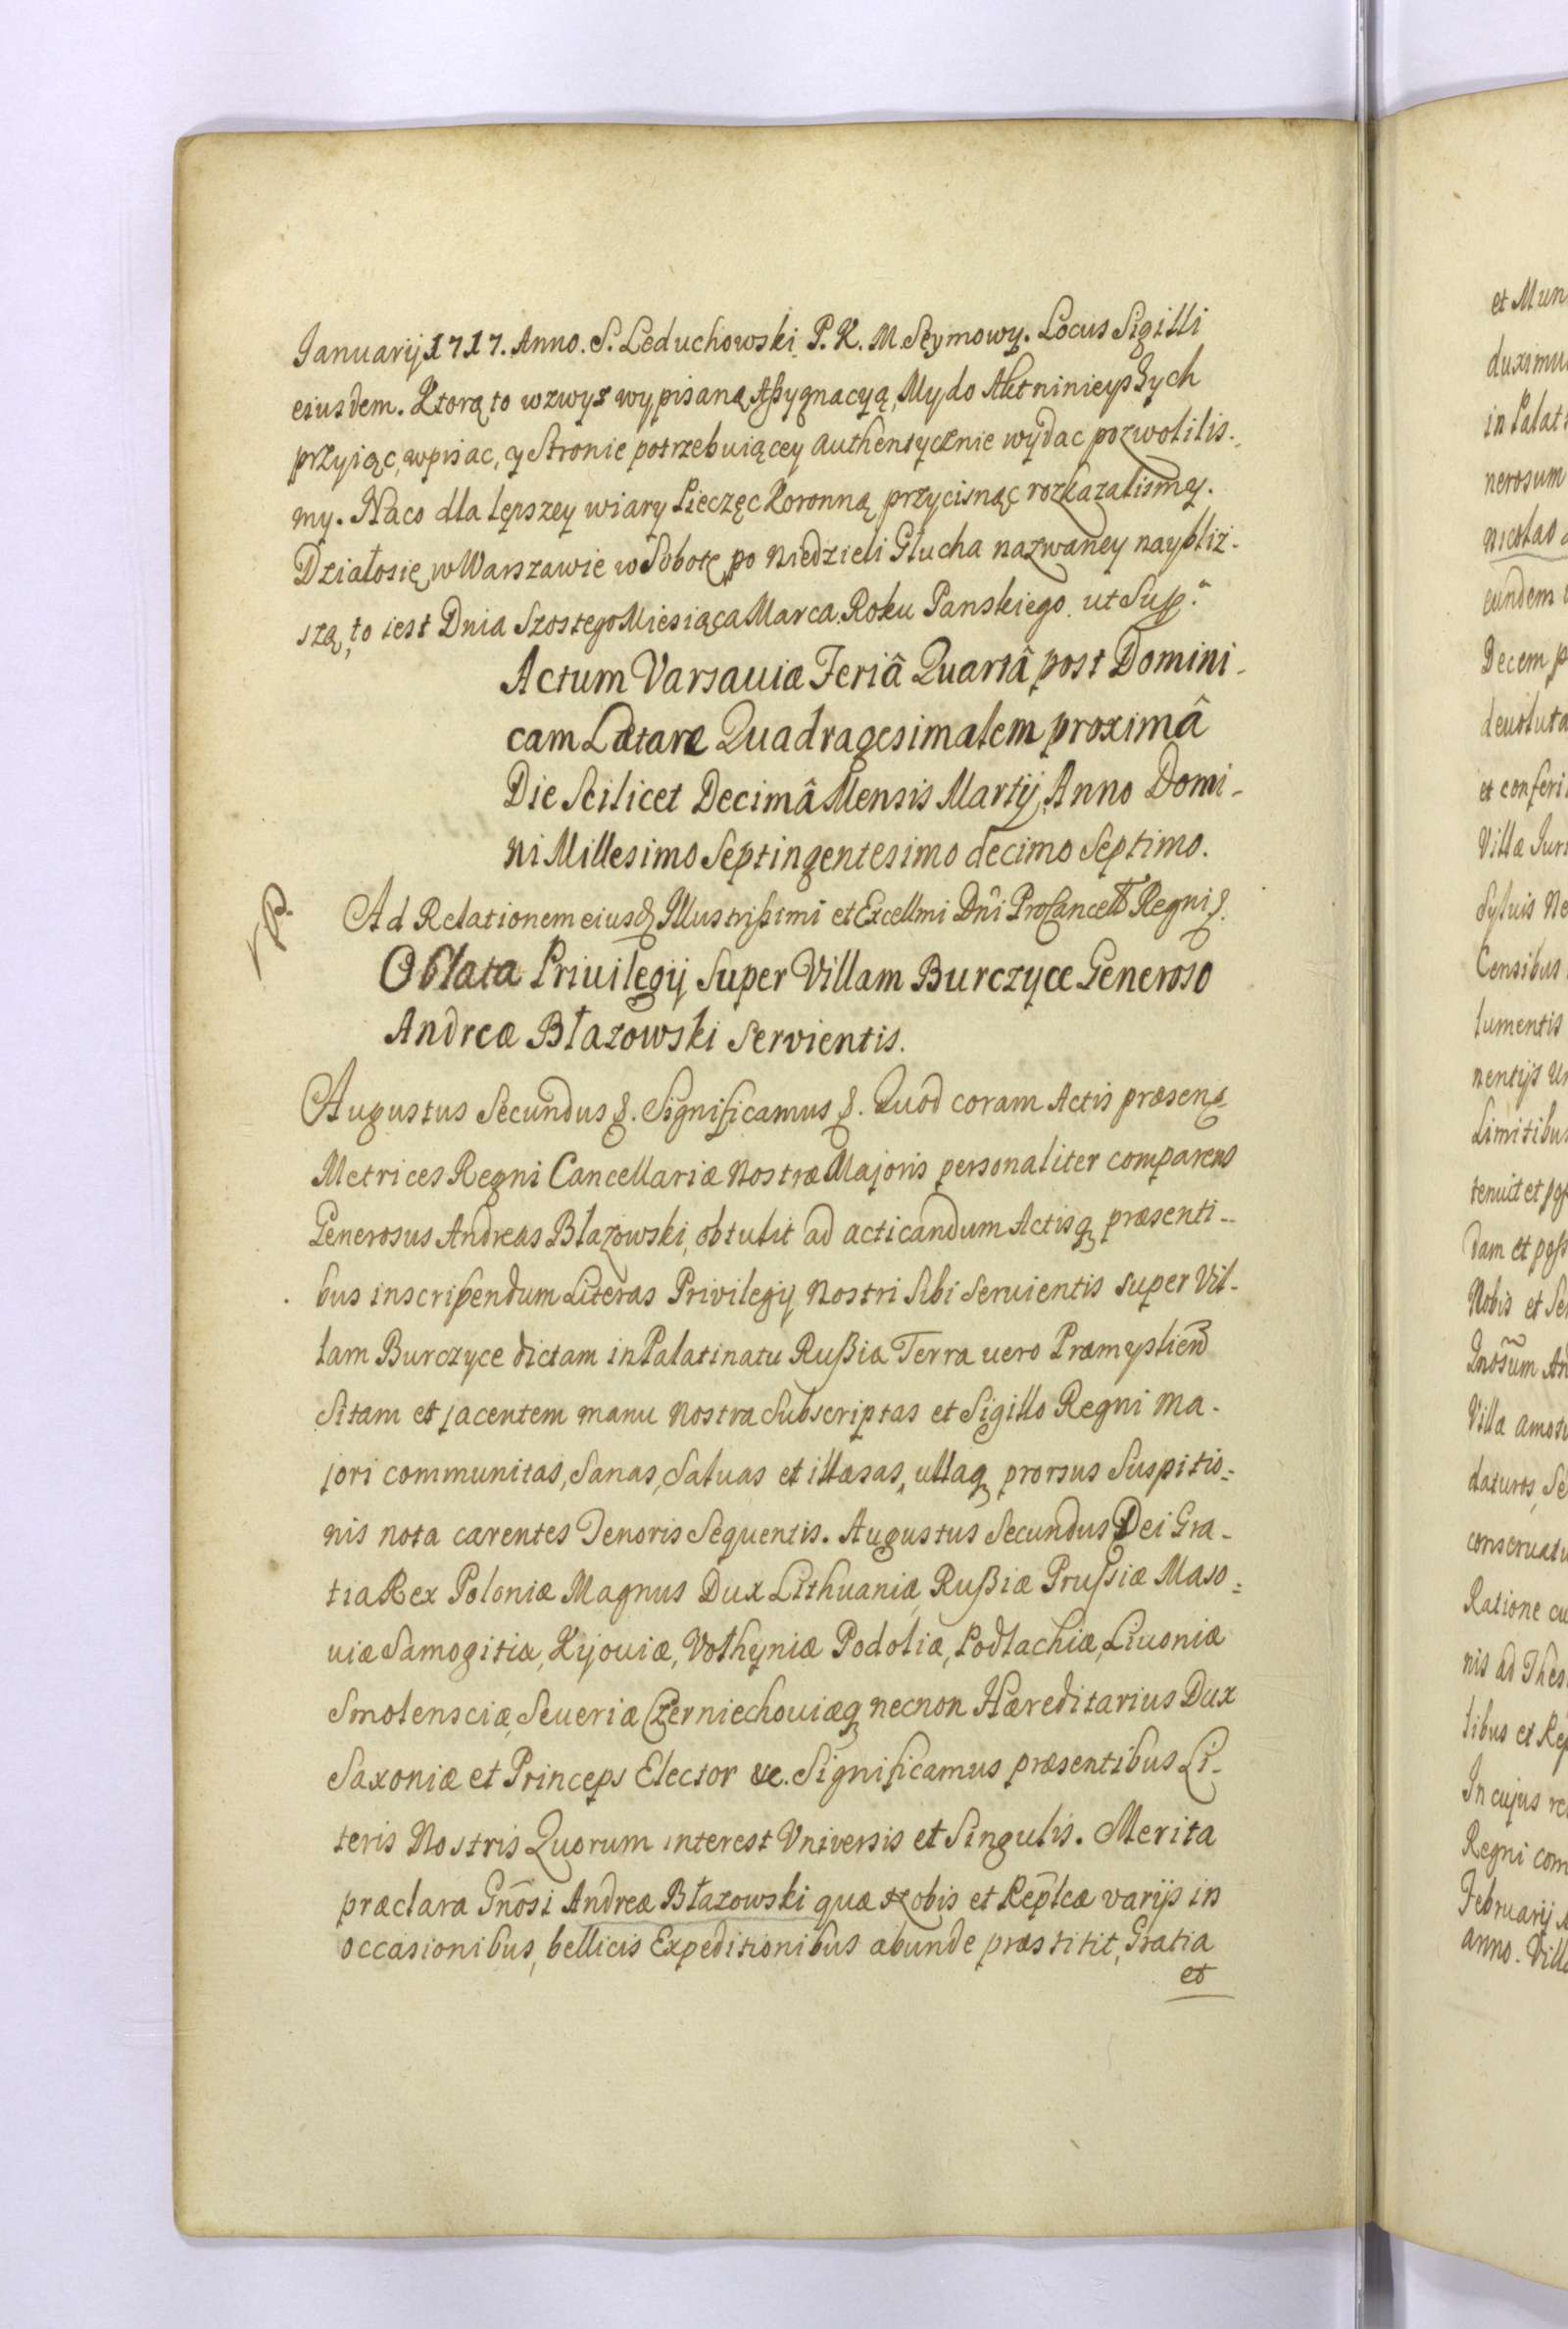 Januarij 1717. Anno. S. Leduchowski P. K. M. Seymowy. Locus Sigilli
eiusdem. Ktorą to wzwyż wypisaną Assygnacyą, My do Akt ninieyszych
przyiąc, wpisac, y Stronie potrzebuiącey authentycznie wydac pozwolilis-
my. Naco dla lepszey wiary Pieczęc Koronną przycisnąc rozkazalismy.
Działosię w Warszawie w Sobotę po Niedzieli Głucha nazwaney naybliz-
szą, to iest Dnia Szostego Miesiąca Marca Roku Panskiego ut Supª.
Actum Varsauiæ Feriâ Quartâ post Domini-
cam Lætare Quadragesimalem proximâ
Die Scilicet Decimâ Mensis Martij, Anno Domi-
ni Millesimo Septingentesimo decimo Septimo.
Ad Relationem eiusd Illustrissimi et Excellmi Dñi ProCancell Regni &.
Oblata Priuilegij Super Villam Burczyce Generoso
Andreæ Błazowski Servientis.
Augustus Secundus &. Significamus &. Quod coram Actis præsen
Metrices Regni Cancellariæ Nostræ Majoris personaliter comparens
Generosus Andreas Błazowski, obtulit ad acticandum Actisq præsenti-
bus inscribendum Literas Privilegij Nostri Sibi Seruientis super Vil-
lam Burczyce dictam in Palatinatu Russiæ Terra uero Præmyslien
Sitam et jacentem manu Nostra Subscriptas et Sigillo Regni Ma-
jori communitas, Sanas, Saluas et illæsas, ullaq prorsus Suspitio-
nis nota carentes Tenoris Sequentis. Augustus Secundus Dei Gra-
tia Rex Poloniæ Magnus Dux Lithuaniæ, Russiæ Prussiæ Maso-
uiæ Samogitiæ, Kijouiæ, Volhyniæ Podoliæ, Podlachiæ, Liuoniæ
Smolensciæ, Seueriæ Czerniechouiæq necnon Hæreditarius Dux
Saxoniæ et Princeps Elector &c. Significamus præsentibus Li-
teris Nostris Quorum interest Vniversis et Singulis. Merita
præclara Gñosi Andreæ Błazowski quæ Nobis et Reiplcæ varijs in
occasionibus, bellicis Expeditionibus abunde præstitit, Gratia
et
et Mun
duximu
in Palat
nerosum
nicolao
eundem
Decem p
deuoluta
et conferi
Villæ Juri
Syluis Ne
Censibus
lumentis
nentijs
Limitibus
tenuit et
dam et poss
Nobis et Se
Gnosum An
Villa
daturos, Se
conseruatu
Ratione cu
nis ad Thes
tibus et Rep
In cujus re
Regni com
Februarij
anno. Villa